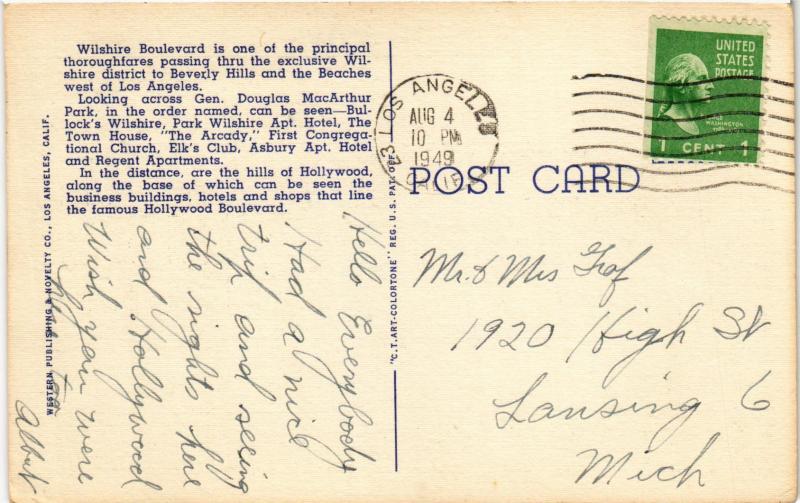 Wilshire Boulevard is one of the principal
thoroughfares passing thru the exclusive Wil-
shire district to Beverly Hills and the Beaches
west of Los Angeles.
Looking across Gen. Douglas MacArthur
Park, in the order named, can be seen—Bul-
lock's Wilshire, Park Wilshire Apt. Hotel, The
Town House, "The Arcady," First Congrega-
tional Church, Elk's Club, Asbury Apt. Hotel
and Regent Apartments.
In the distance, are the hills of Hollywood,
along the base of which can be seen the
business buildings, hotels and shops that line
the famous Hollywood Boulevard.
WESTERN PUBLISHING & NOVELTY CO., LOS ANGELES, CALIF.
Hello Everybody
Had a nice
trip and seeing
the sights here
and Hollywood
Wish you were
"C.T. ART-COLORTONE" REG. U.S. PAT. OFF.
LOS ANGELES
23
AUG 4
10 PM
1949
CALIF.
UNITED
STATES
POSTAGE
WASHINGTON
1 CENT 1
POST CARD
Mr & Mrs Graf
1920 High St
Lansing 6
Mich